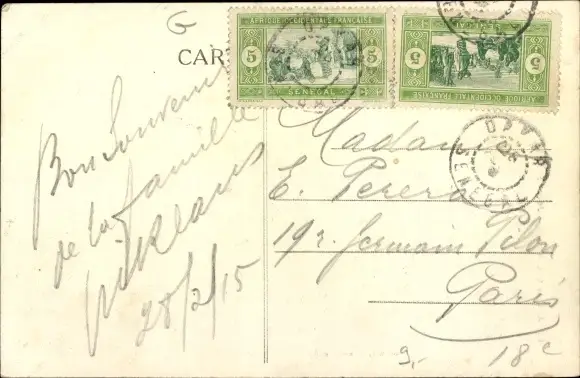 G
CAR
AFRIQUE OCCIDENTALE FRANÇAISE
5 5
SENEGAL
AFRIQUE OCCIDENTALE FRANÇAISE
5 5
SENEGAL
Bon Souvenir
de la famille
28/2/15
Madame
E. Perera
19 r. Germain Pilon
Paris
9,- 18c